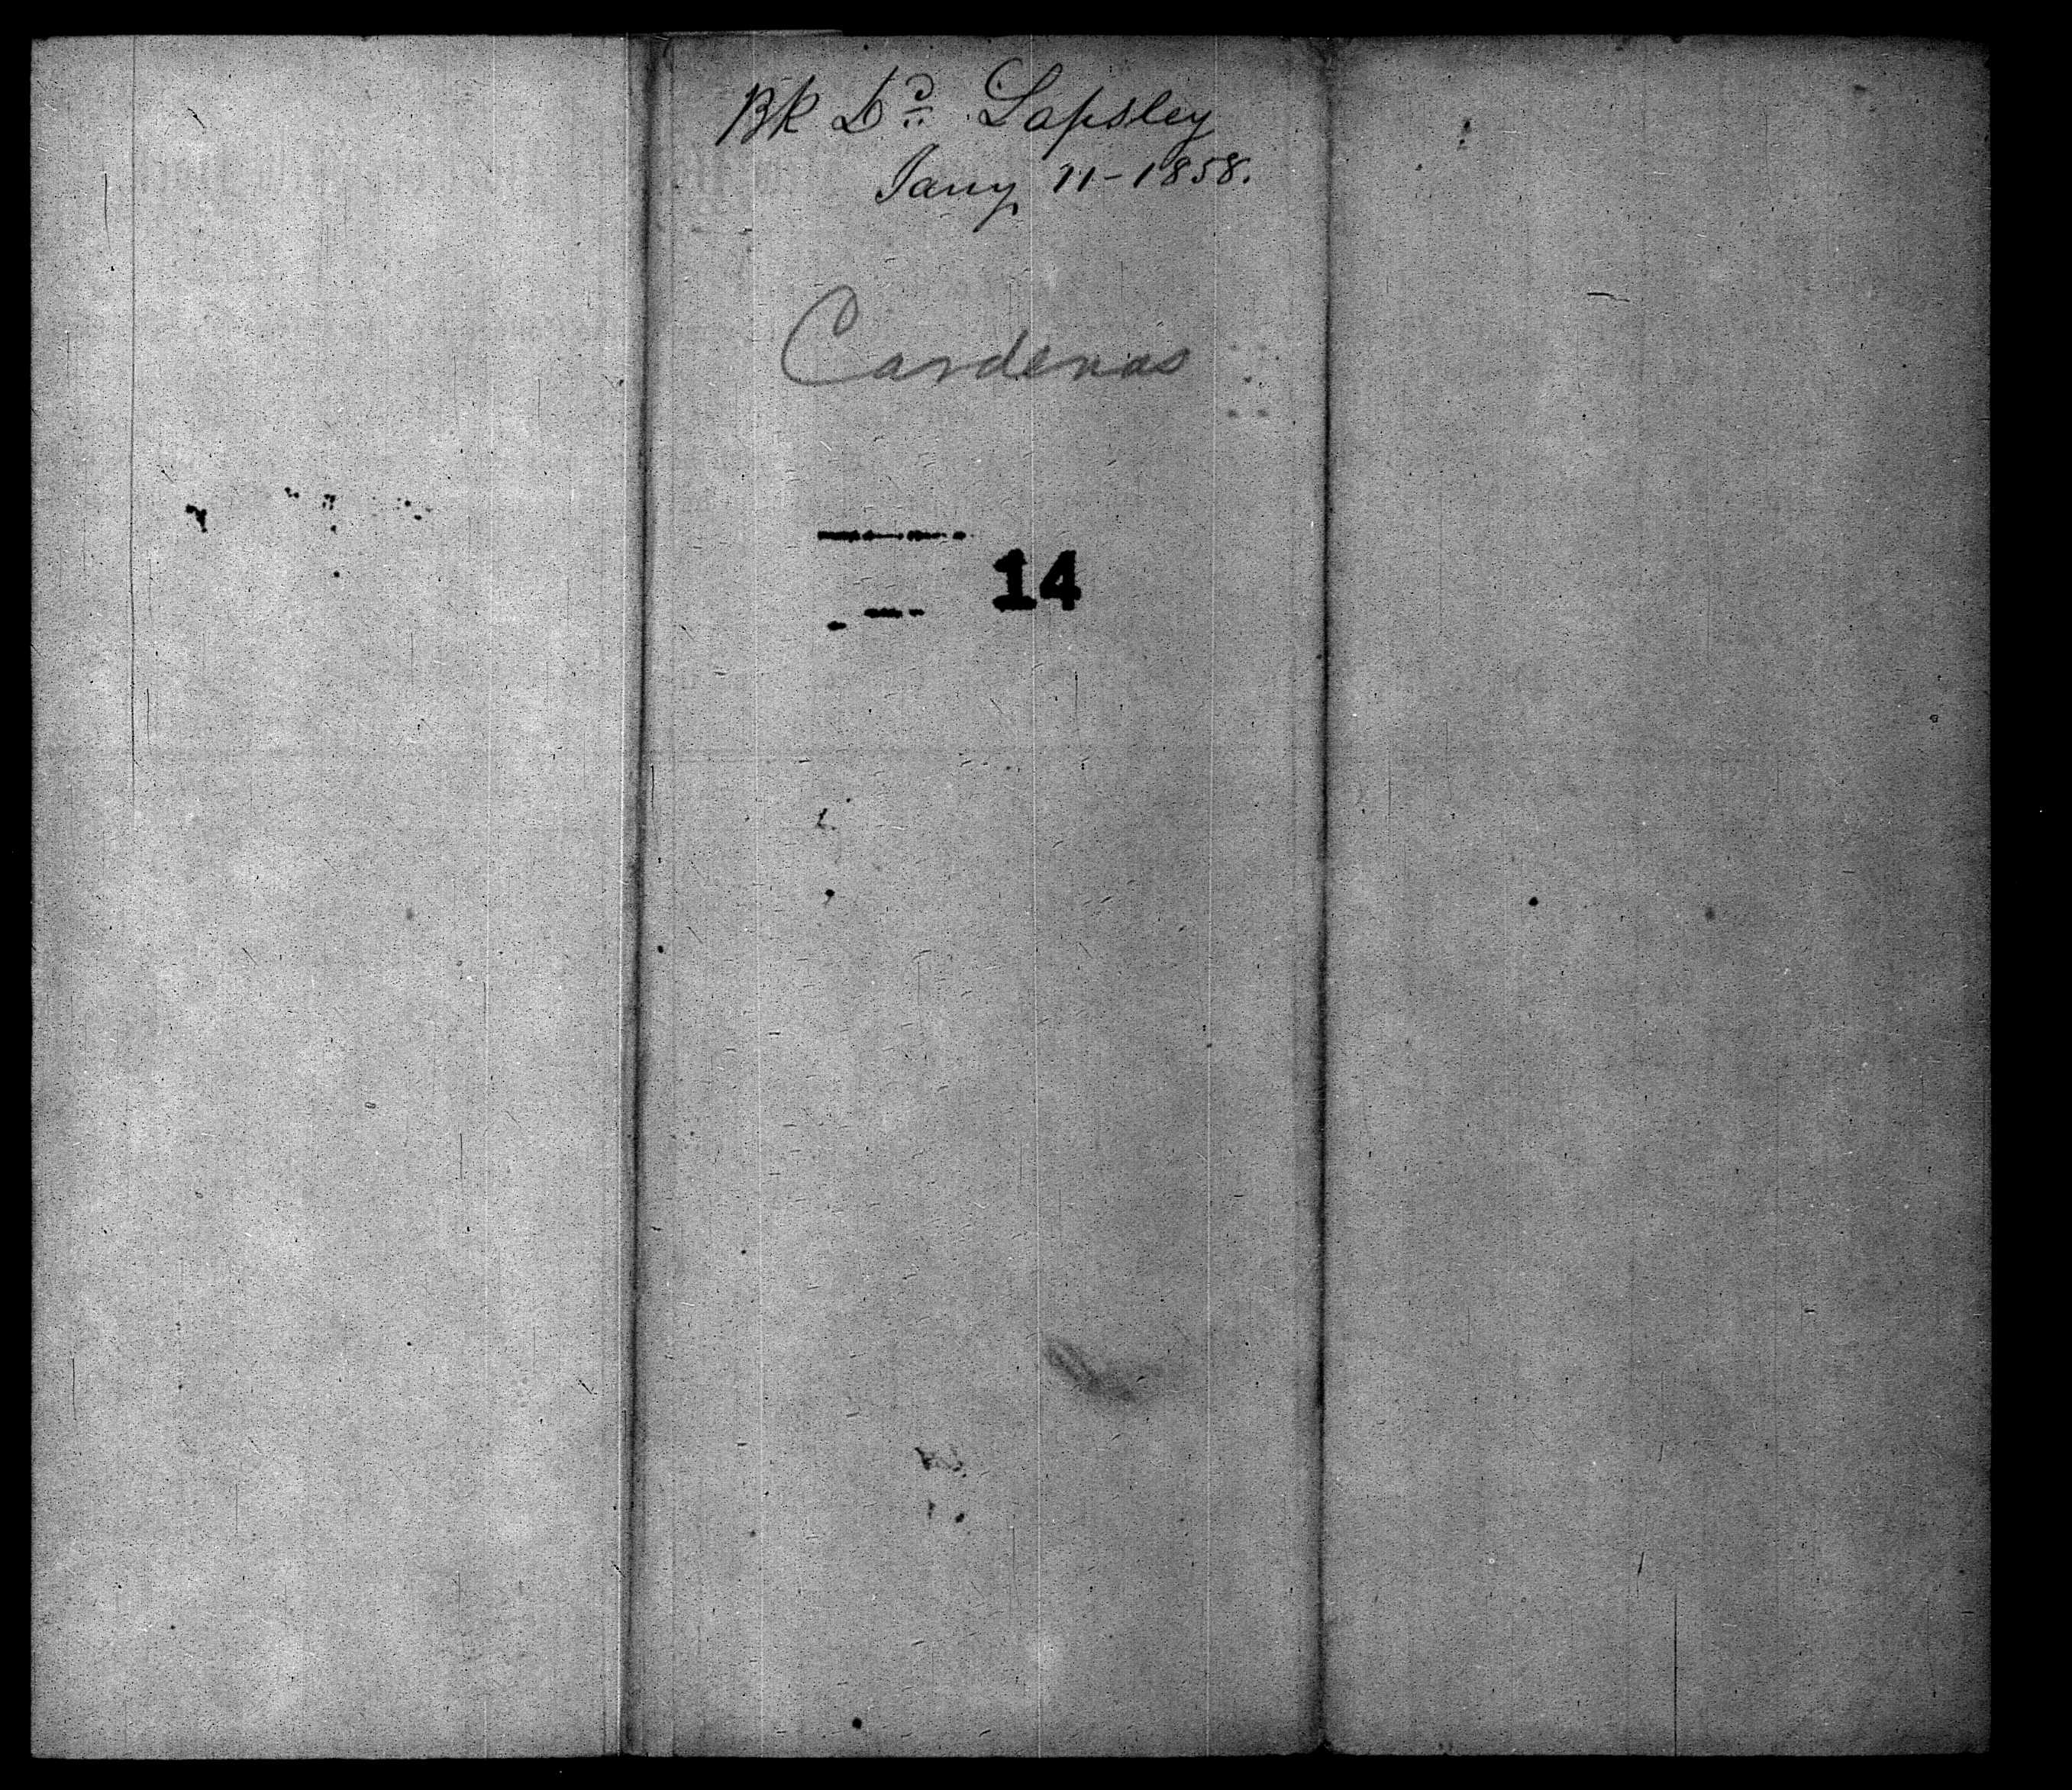 Bk D? Lapsley
Jany 11-1858.
Cardenas
14